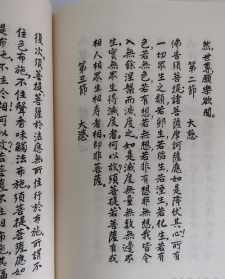 然。世尊願樂欲聞。
第二節 大
佛告須菩提諸菩薩摩訶薩應如是降伏其心所有
一切眾生之類若卵生若胎生若濕生若化生若有
色若無色若有想若無想若非有想非無想我皆令
入無餘涅槃而滅度之如是滅度無量無數無邊眾
生實無眾生得滅度者何以故須菩提若菩薩有我
相人相眾生相壽者相即非菩薩。
第三節 大
復次須菩提菩薩於法應無所住行於布施所謂不
住色布施不住聲香味觸法布施須菩提菩薩應如
是布施不住於相何以故